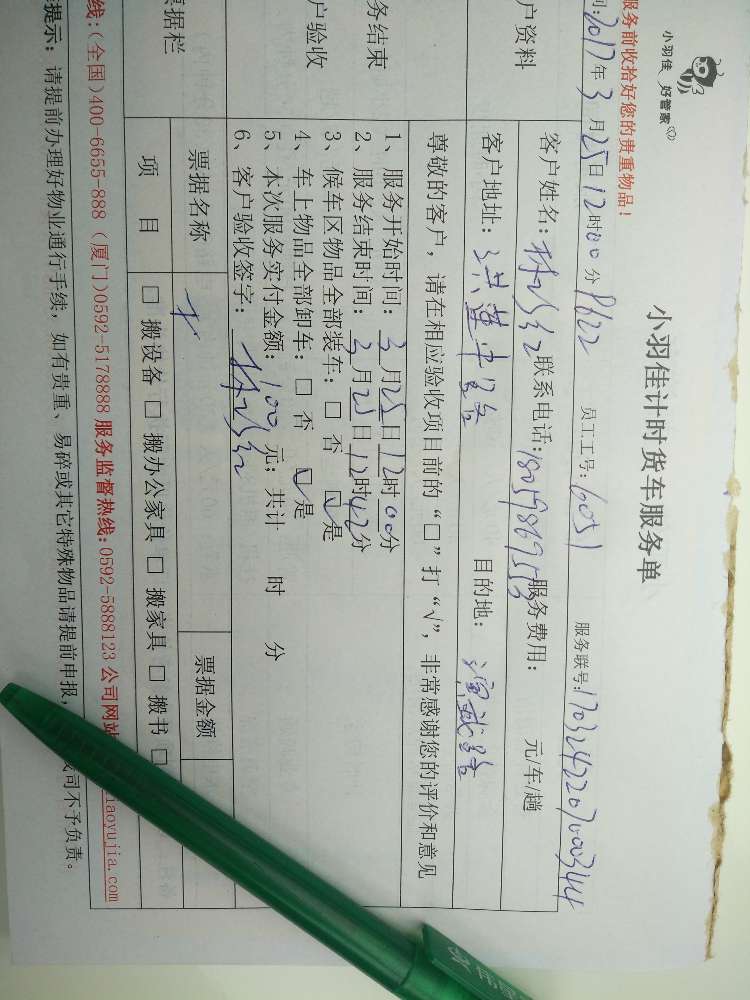 小羽佳 好管家
服务前收拾好您的贵重物品!
小羽佳计时货车服务单
2017年3月25日12时00分 员工工号:6051 服务联号:1703242207000344
户资料
客户姓名: 联系电话: 服务费用: 元/车/趟
客户地址: 洪莲中路 目的地:
务结束
户验收
尊敬的客户,请在相应验收项目前的“□”打“√”,非常感谢您的评价和意见
1、服务开始时间:3月25日12时00分
2、服务结束时间:3月25日12时42分
3、候车区物品全部装车:□ 否 □是
4、车上物品全部卸车:□ 否 □是
5、本次服务实付金额:100元;共计 时 分
6、客户验收签字:
票据栏
票据名称 票据金额
项 目 □ 搬设备 □ 搬办公家具 □ 搬家具 □ 搬书 □
线:(全国)400-6655-888 (厦门)0592-5178888 服务监督热线:0592-5888123 公司网站 iaoyujia.com
提示:请提前办理好物业通行手续,如有贵重、易碎或其它特殊物品请提前申报, 司不予负责。